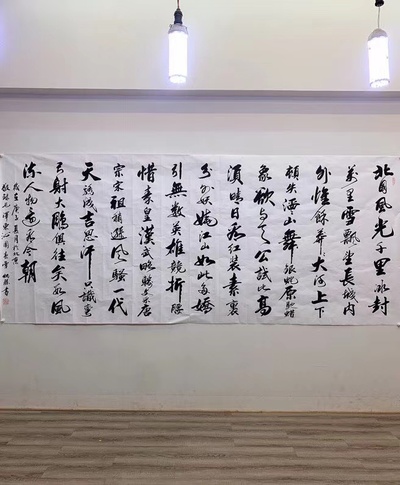 北國風光千里冰封
萬里雪飄望長城内
外惟餘莽莽大河上下
頓失滔滔山舞銀蛇原馳蜡
象欲与天公試比高
須晴日看紅裝素裹
分外妖嬈江山如此多嬌
引無數英雄競折腰
惜秦皇漢武略輸文采唐
宗宋祖稍遜風騷一代
天驕成吉思汗只識彎
弓射大鵰俱往矣數風
流人物還看今朝
歲在庚子夏月於北京
敬録毛澤東沁園春雪 書